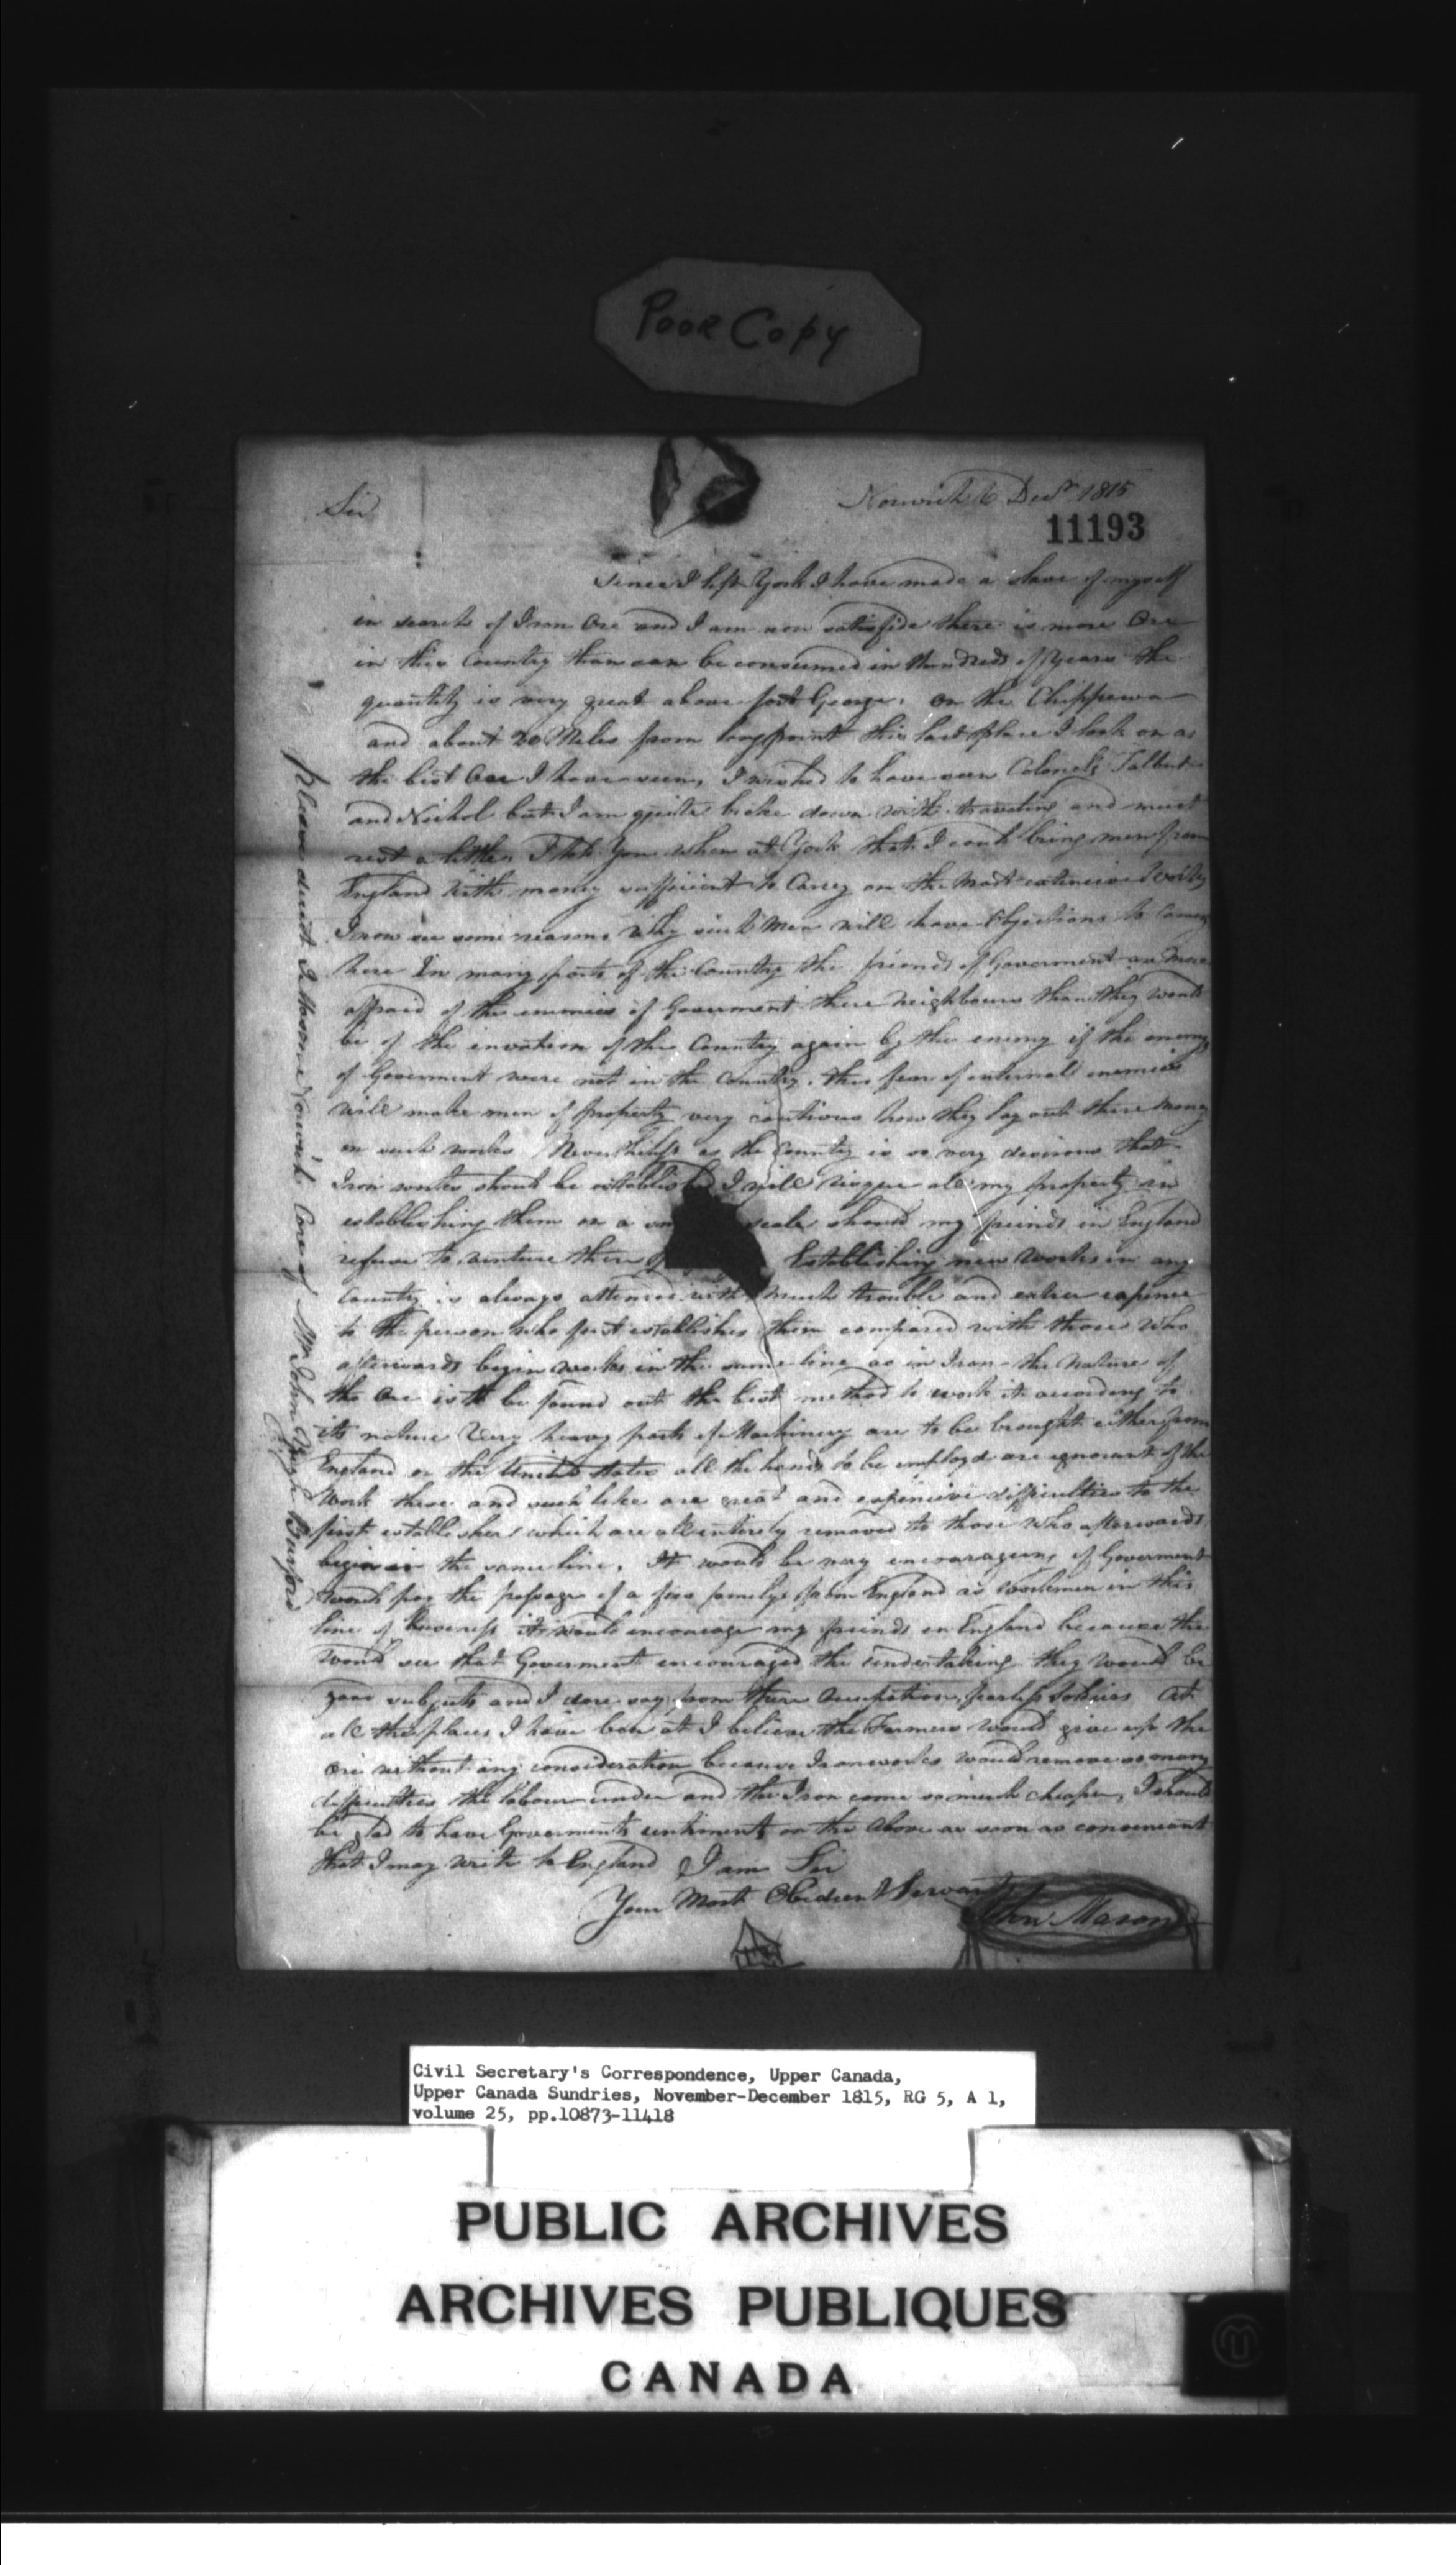 Poor Copy
Sir
Norwich 6 Decr 1815
11193
Since I left York I have made a slave of myself
in search of Iron Ore and I am now satisfide there is more Ore
in this Country than can be consumed in Hundreds of years the
quantity is very great above fort George, on the Chippewa
and about 20 Miles from longpoint this last place I look on as
the best Ore I have seen, I wished to have seen Colonels Talbut
and Nichol but I am quite broke down with traveling and must
rest a little. I told You when at York that I could bring men from
England with money sufficient to Carry on the most extencive Works
I now see some reasons why such Men will have Objections to Coming
here In many parts of the Country the friends of Goverment are more
affraid of the enimies of Goverment there neighbours than they would
be of the envation of this Country again by the enemy if the enemys
of Goverment were not in the Country, this fear of internal enemies
will make men of property very cautious how they lay out there money
on such works Nevertheless as the Country is so very desirous that
Iron works should be established I will risque all my property in
establishing them on a scale should my friends in England
refuse to venture there Establishing new works in any
Country is always attended with much trouble and extra expence
to the person who first establishes them compared with those who
afterwards begin works in the same line as in Iron the nature of
the Ore is to be found out the best method to work it according to
its nature Very heavy parts of Machinery are to be brought either from
England or the United States all the hands to be employd are ignorant of the
Work these and such like are great and expencive difficulties to the
first establisher which are all entirely removed to those who afterwards
begin in the same line, It would be very encourageing if Goverment
would pay the passage of a few familys from England as workmen in this
line of buisness it would encourage my friends in England because the
would see that Goverment encouraged the undertaking they would be
good subjects and I dare say from there Occupation Soldiers At
all the places I have ben at I believe the Farmers would give up the
Ore without any consideration because Ironworks would remove so many
difficulties the labour under and the Iron come so much cheaper, I should
be glad to have Goverments sentiments on the Above as soon as conveneant
that I may write to England I am Sir
Your Most Obedient Servant
John Mason
Please direct J Mason Norwich Care of Mr John Burford
Civil Secretary's Correspondence, Upper Canada,
Upper Canada Sundries, November-December 1815, RG 5, A 1,
volume 25, pp.10873-11418
PUBLIC ARCHIVES
ARCHIVES PUBLIQUES
CANADA